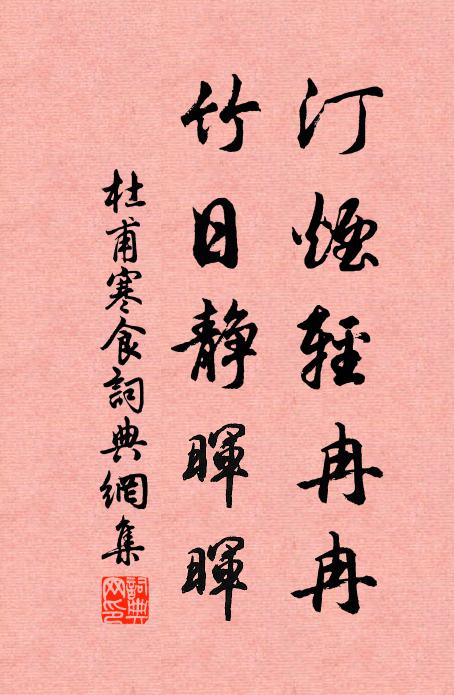 汀煙輕冉冉
竹日靜暉暉
杜甫寒食詞典網集
詞典网印